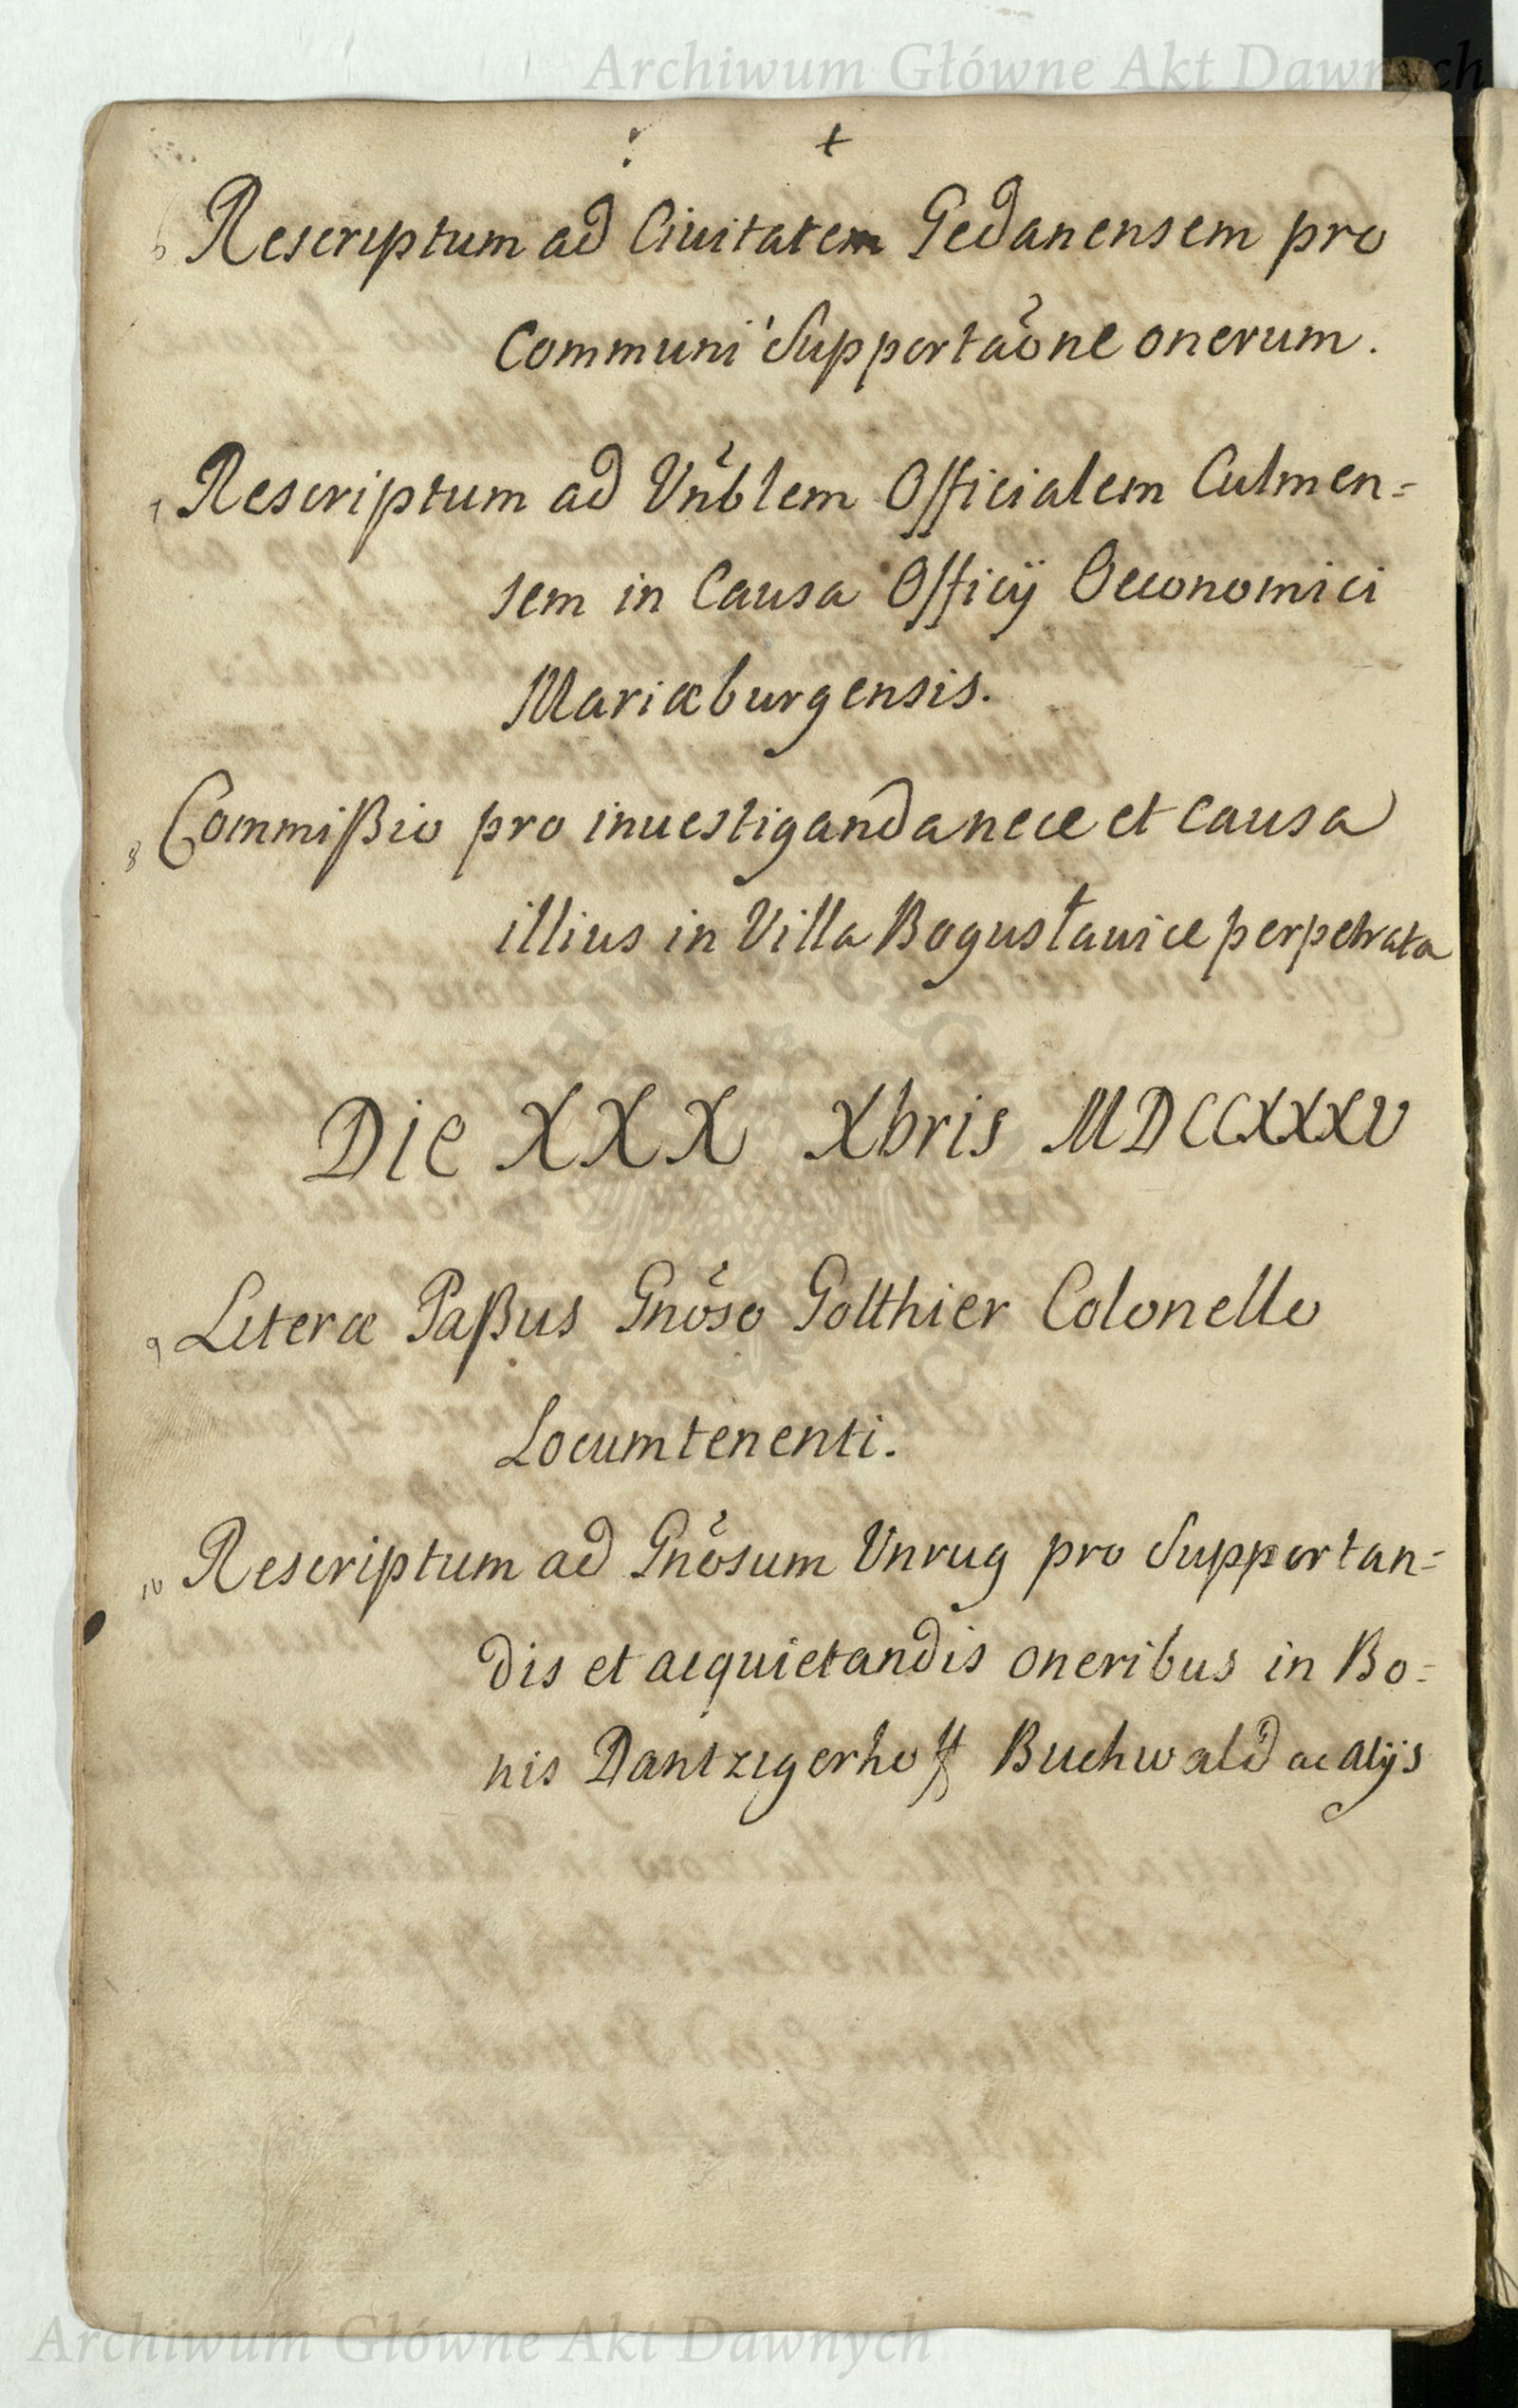 Archiwum Główne Akt Dawnych
+
6 Rescriptum ad Ciuitatem Gedanensem pro
Communi Supportaõne onerum.
7 Rescriptum ad Vnblem Officialem Culmen=
sem in Causa Officÿ Oeconomici
Mariæburgensis.
8 Commißio pro inuestiganda nece et causa
illius in Villa Bogusławice perpetrata
Die XXX Xbris MDCCXXXV
9 Literæ Paßus Gnõso Golthier Colonello
Locumtenenti.
10 Rescriptum ad Gnõsum Vnrug pro Supportan=
dis et acquietandis oneribus in Bo=
nis Dantzigerhoff Buchwald ac alÿs
Archiwum Główne Akt Dawnych